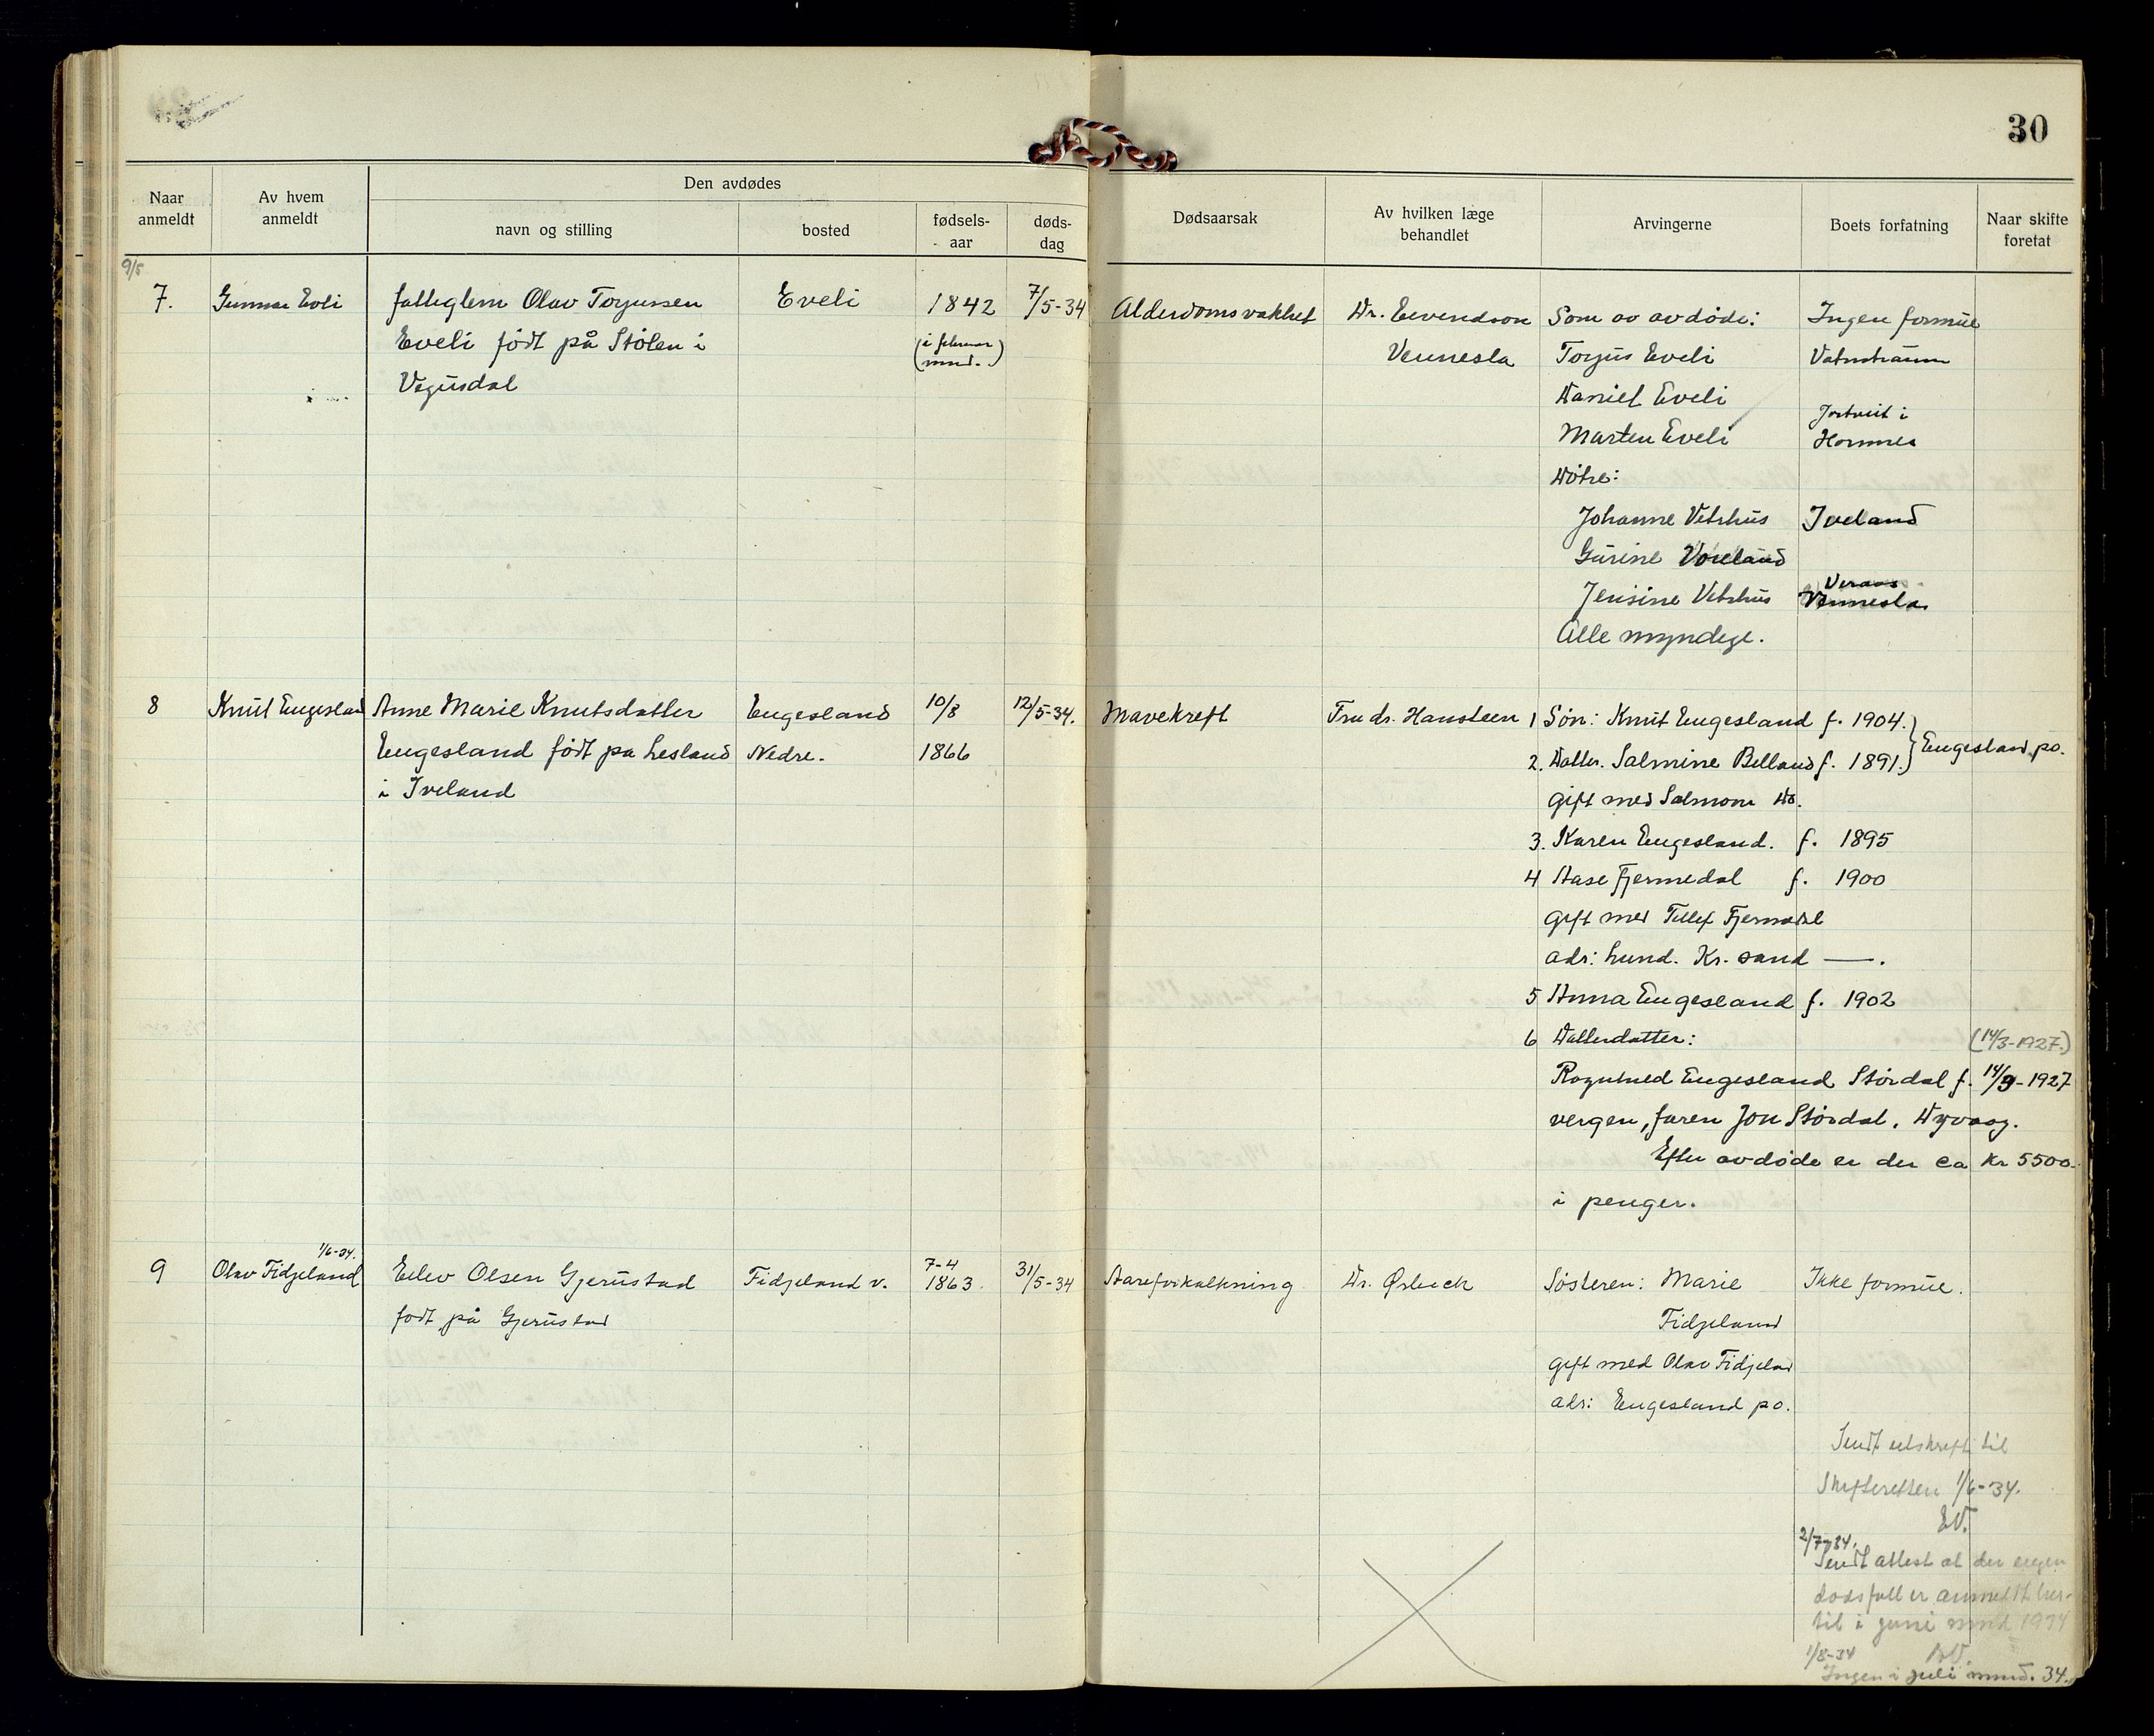 30
Naar anmeldt
Av hvem anmeldt
Den avdødes
navn og stilling
bosted
fødsels-aar
døds-dag
Dødsaarsak
Av hvilken læge behandlet
Arvingerne
Boets forfatning
Naar skifte foretat
9/5
7. Gunnar Evli fattiglem Olav Torjussen Eveli 1842 7/5-34 Alderdomsvakhet Dr. Eevendson Som av avdøde: Ingen formue
Eveli født på Stölen i (i februar Vennesla Torjus Eveli Vatnstraum
Vegusdal mnd.)
Daniel Eveli
Jortveit i
Marten Eveli Hornnes
Døtre:
Johanne Vetrhus Iveland
Gurine Voreland
Veraas
Jensine Vetrhus Vennesla
Alle myndige.
8 Knut Engesland Anne Marie Knutsdatter Engesland 10/8 12/5-34. Mavekreft Fru dr. Hansteen 1 Søn: Knut Engesland f. 1904.
Engesland født på Lesland Nedre. 1866 2. Datter. Salmine Belland f. 1891. Engesland po.
i Iveland gift med Salmon do.
3. Karen Engesland. f. 1895
4 Aase Fjermedal f. 1900
gift med Tellef Fjermedal
adr: Lund. Kr. sand —.
5 Anna Engesland f. 1902
6 Datterdatter: (14/3-1927.)
Engesland Stördal f. 14/9-1927
vergen, faren Jon Stördal. Dypvaag.
Efter avdøde er der ca Kr 5500.
i penger.
1/6-34.
9 Olav Fidjeland Eilev Olsen Gjerustad Fidjeland v. 7-4 1863. 31/5-34 Aareforkalkning Dr. Ørbeck Søsteren: Marie Ikke formue.
født på Gjerustad Fidjeland
gift med Olav Fidjeland
adr: Engesland po.
Sendt utskrift til
Skifteretten 1/6-34.
EV.
2/7-34.
Sendt attest at der ingen
dødsfall er anmeldt her-
til i juni mnd 1934
1/8-34
Ingen i juli mnd. 34.